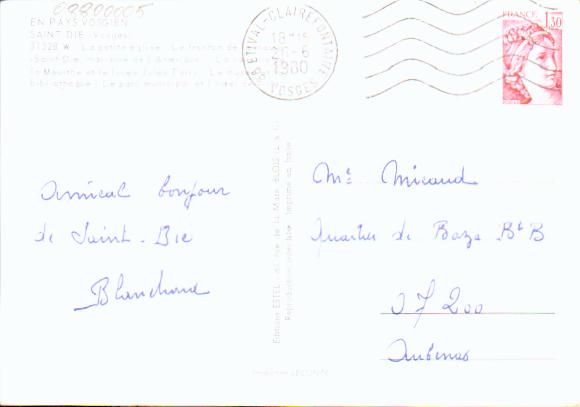 09800005
EN PAYS VOSGIEN
SAINT DIÉ (Vosges)
31328 W La petite église Le fronton de
(Saint Dié, marraine de l'Amérique La
la Meurthe et le lycée Jules Ferry La
bibliothèque Le parc municipal et l'hôtel
88 ETIVAL-CLAIREFONTAINE
18H15
-6
1980
VOSGES
FRANCE
1,30
Amical bonjour
de Saint-Die
Blanchard
Editions ESTEL rue de la Mare BLOIS
Reproduction interdite Imprimé en Italie
Me Micaud
Quartier de Baza Bt B
07200
Aubenas